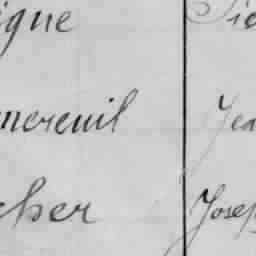 igne Pie
mereuil Jea
cher Josep